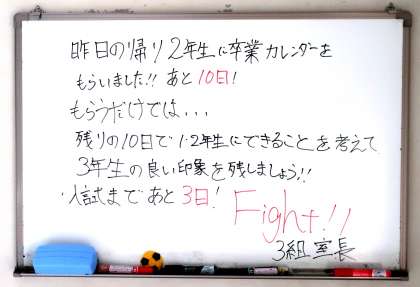 昨日の帰り2年生に卒業カレンダーを
もらいました!! あと10日!
もらうだけでは...
残りの10日で1・2年生にできることを考えて
3年生の良い印象を残しましょう!!
・入試まであと3日!
Fight!!
3組室長